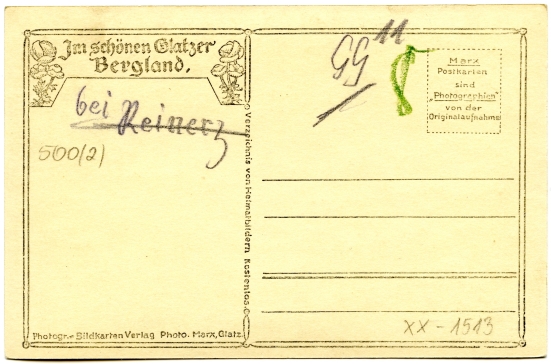 Im schönen Glatzer
Bergland.
bei Reinerz
500/2)
GG 11
Marx
Postkarten
sind
"Photographien"
von der
Originalaufnahme
Verzeichnis von Heimatbildern Kostenlos.
XX - 1513
Photogr.- Bildkarten Verlag Photo. Marx, Glatz